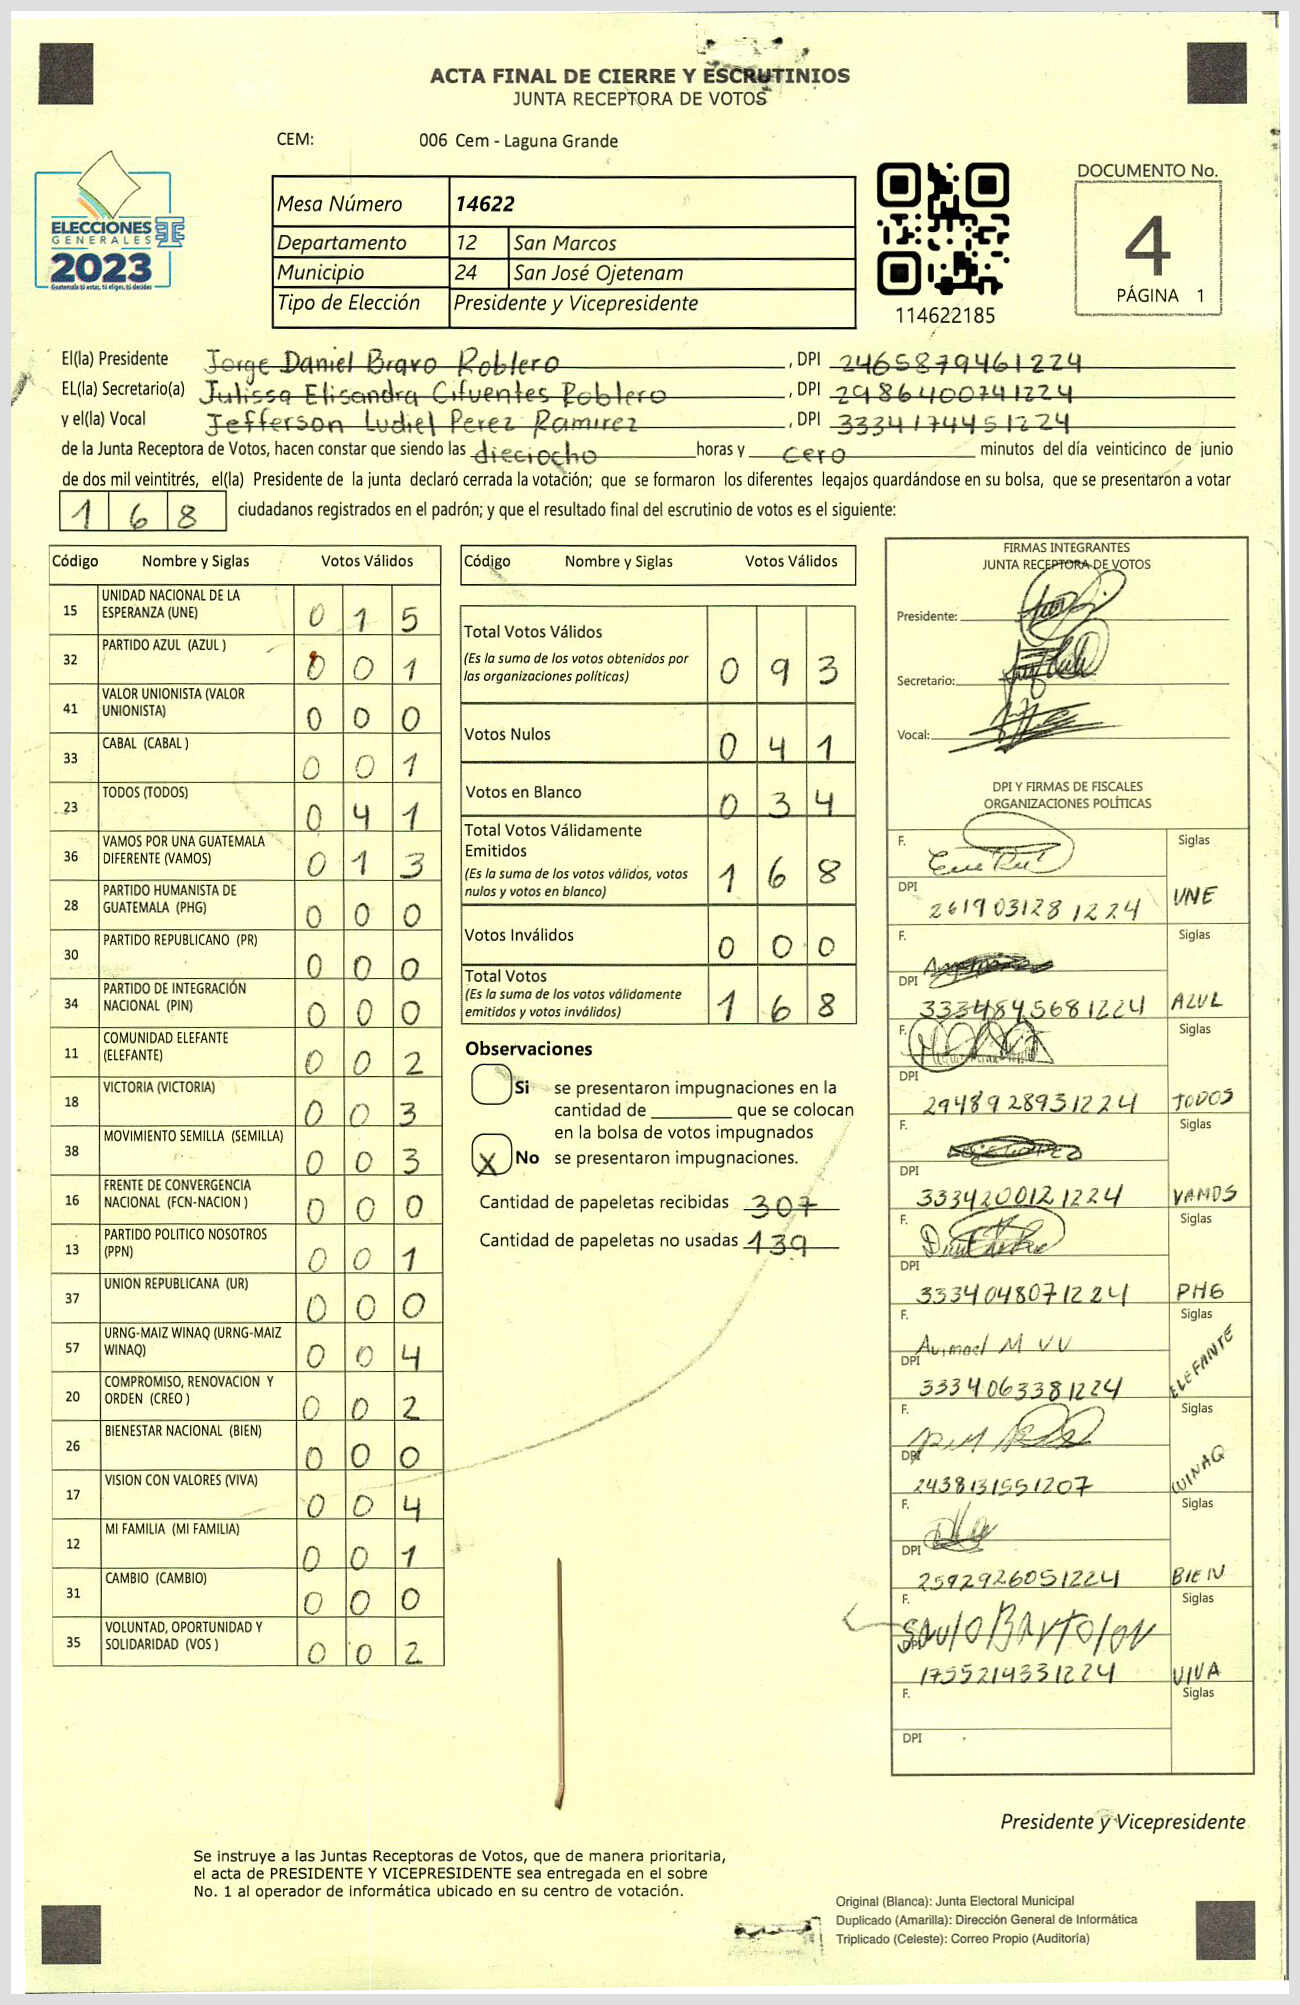 ACTA FINAL DE CIERRE Y ESCRUTINIOS
JUNTA RECEPTORA DE VOTOS
CEM: 006 Cem - Laguna Grande
ELECCIONES
GENERALES
2023
Guatemala tú votas, tú eliges, tú decides
Mesa Número 14622
Departamento 12 San Marcos
Municipio 24 San José Ojetenam
Tipo de Elección Presidente y Vicepresidente
114622185
DOCUMENTO No.
4
PÁGINA 1
El(la) Presidente Jorge Daniel Bravo Roblero, DPI 2465879461224
EL(la) Secretario(a) Julissa Elisandra Cifuentes Roblero, DPI 2986400741224
y el(la) Vocal Jefferson Ludiel Perez Ramirez, DPI 3334174451224
de la Junta Receptora de Votos, hacen constar que siendo las dieciocho horas y cero minutos del día veinticinco de junio
de dos mil veintitrés, el(la) Presidente de la junta declaró cerrada la votación; que se formaron los diferentes legajos guardándose en su bolsa, que se presentaron a votar
168 ciudadanos registrados en el padrón; y que el resultado final del escrutinio de votos es el siguiente:
Código Nombre y Siglas Votos Válidos
15 UNIDAD NACIONAL DE LA ESPERANZA (UNE) 0 1 5
32 PARTIDO AZUL (AZUL ) 0 0 1
41 VALOR UNIONISTA (VALOR UNIONISTA) 0 0 0
33 CABAL (CABAL ) 0 0 1
23 TODOS (TODOS) 0 4 1
36 VAMOS POR UNA GUATEMALA DIFERENTE (VAMOS) 0 1 3
28 PARTIDO HUMANISTA DE GUATEMALA (PHG) 0 0 0
30 PARTIDO REPUBLICANO (PR) 0 0 0
34 PARTIDO DE INTEGRACIÓN NACIONAL (PIN) 0 0 0
11 COMUNIDAD ELEFANTE (ELEFANTE) 0 0 2
18 VICTORIA (VICTORIA) 0 0 3
38 MOVIMIENTO SEMILLA (SEMILLA) 0 0 3
16 FRENTE DE CONVERGENCIA NACIONAL (FCN-NACION ) 0 0 0
13 PARTIDO POLITICO NOSOTROS (PPN) 0 0 1
37 UNION REPUBLICANA (UR) 0 0 0
57 URNG-MAIZ WINAQ (URNG-MAIZ WINAQ) 0 0 4
20 COMPROMISO, RENOVACION Y ORDEN (CREO ) 0 0 2
26 BIENESTAR NACIONAL (BIEN) 0 0 0
17 VISION CON VALORES (VIVA) 0 0 4
12 MI FAMILIA (MI FAMILIA) 0 0 1
31 CAMBIO (CAMBIO) 0 0 0
35 VOLUNTAD, OPORTUNIDAD Y SOLIDARIDAD (VOS ) 0 0 2
Código Nombre y Siglas Votos Válidos
Total Votos Válidos 0 9 3
(Es la suma de los votos obtenidos por
las organizaciones políticas)
Votos Nulos 0 4 1
Votos en Blanco 0 3 4
Total Votos Válidamente
Emitidos 1 6 8
(Es la suma de los votos válidos, votos
nulos y votos en blanco)
Votos Inválidos 0 0 0
Total Votos 1 6 8
(Es la suma de los votos válidamente
emitidos y votos inválidos)
Observaciones
Si se presentaron impugnaciones en la
cantidad de ________ que se colocan
en la bolsa de votos impugnados
X No se presentaron impugnaciones.
Cantidad de papeletas recibidas 307
Cantidad de papeletas no usadas 139
FIRMAS INTEGRANTES
JUNTA RECEPTORA DE VOTOS
Presidente:
Secretario:
Vocal:
DPI Y FIRMAS DE FISCALES
ORGANIZACIONES POLÍTICAS
F. Siglas
DPI 2619031281224 UNE
F. Siglas
DPI 3334845681224 AZUL
F. Siglas
DPI 2948928931224 TODOS
F. Siglas
DPI 3334200121224 VAMOS
F. Siglas
DPI 3334048071224 PHG
F. Siglas
DPI 3334063381224 ELEFANTE
F. Siglas
DPI 2438131551207 WINAQ
F. Siglas
DPI 2592926051224 BIEN
F. Saulo Bartolon Siglas
DPI 1755214331224 VIVA
F. Siglas
DPI
Presidente y Vicepresidente
Se instruye a las Juntas Receptoras de Votos, que de manera prioritaria,
el acta de PRESIDENTE Y VICEPRESIDENTE sea entregada en el sobre
No. 1 al operador de informática ubicado en su centro de votación.
Original (Blanca): Junta Electoral Municipal
Duplicado (Amarilla): Dirección General de Informática
Triplicado (Celeste): Correo Propio (Auditoría)